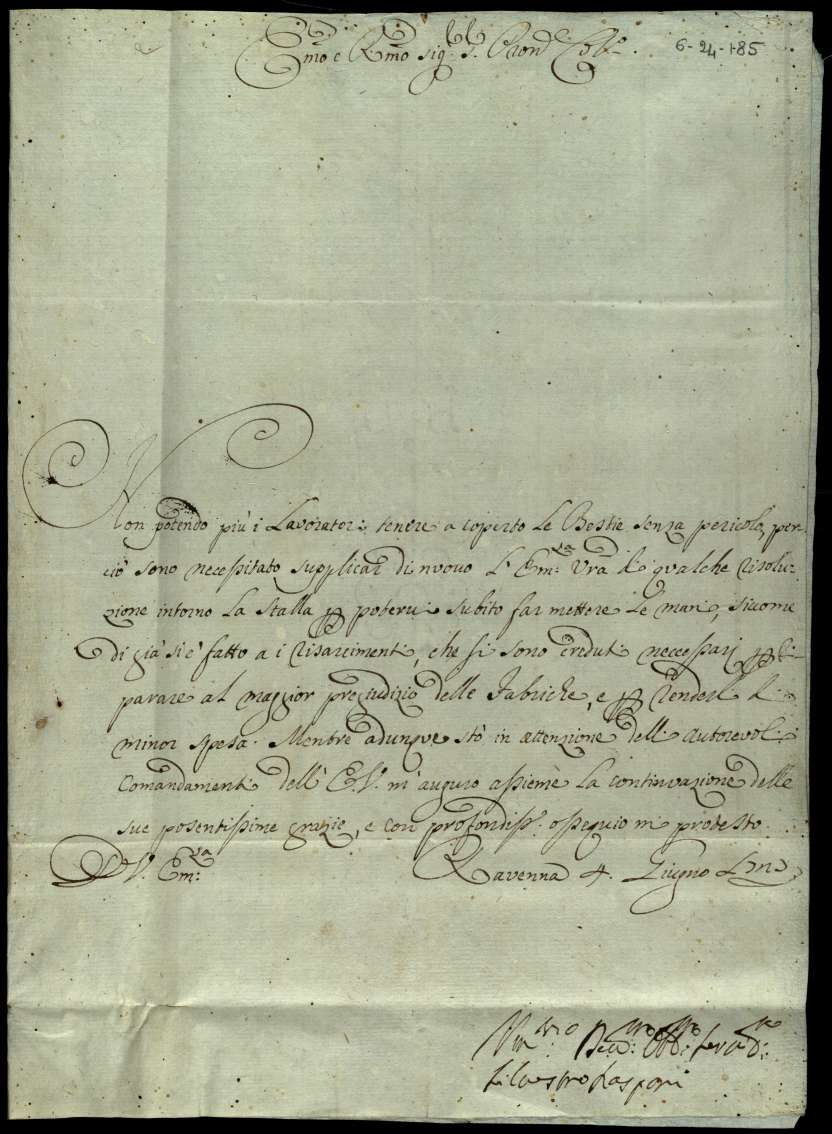 Emo e Rmo Sig.r S. Pron.e Col.mo
6-24-185
Non potendo più i Lavoratori tenere a coperto le Bestie senza pericolo, per-
ciò sono necessitato supplicar di nuovo l'Em:za Vra di qualche risolu-
zione intorno la Stalla per potervi subito far mettere le mani, sicome
di già si è fatto a i risarcimenti, che si sono creduti neccessarj per ri-
parare al maggior pregiudizio delle Fabriche, e per renderli di
minor spesa. Mentre adunque stò in attenzione delli autorevoli
Comandamenti dell'E.V. m'auguro assieme la continuazione delle
sue possentissime grazie, e con profondiss.o ossequio mi protesto
D. V. Em:za
Ravenna 4. Giugno
Um:mo Dev:mo Obb: Serv:re
Silvestro Raspori